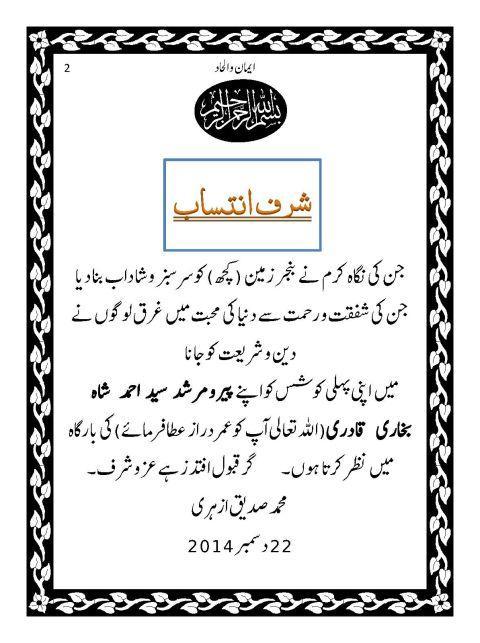 2
ایمان والحاد
بسم الله الرحمن الرحيم
شرف انتساب
جن کی نگاہ کرم نے بنجر زمین (کچھ) کو سرسبز و شاداب بنا دیا
جن کی شفقت و رحمت سے دنیا کی محبت میں غرق لوگوں نے
دین و شریعت کو جانا
میں اپنی پہلی کوشس کو اپنے پیرو مرشد سید احمد شاہ
بخاری قادری (اللہ تعالی آپ کو عمر دراز عطا فرمائے) کی بارگاہ
میں نظر کرتا ہوں۔ گر قبول افتد ز ہے عز و شرف۔
محمد صدیق ازہری
22 دسمبر 2014